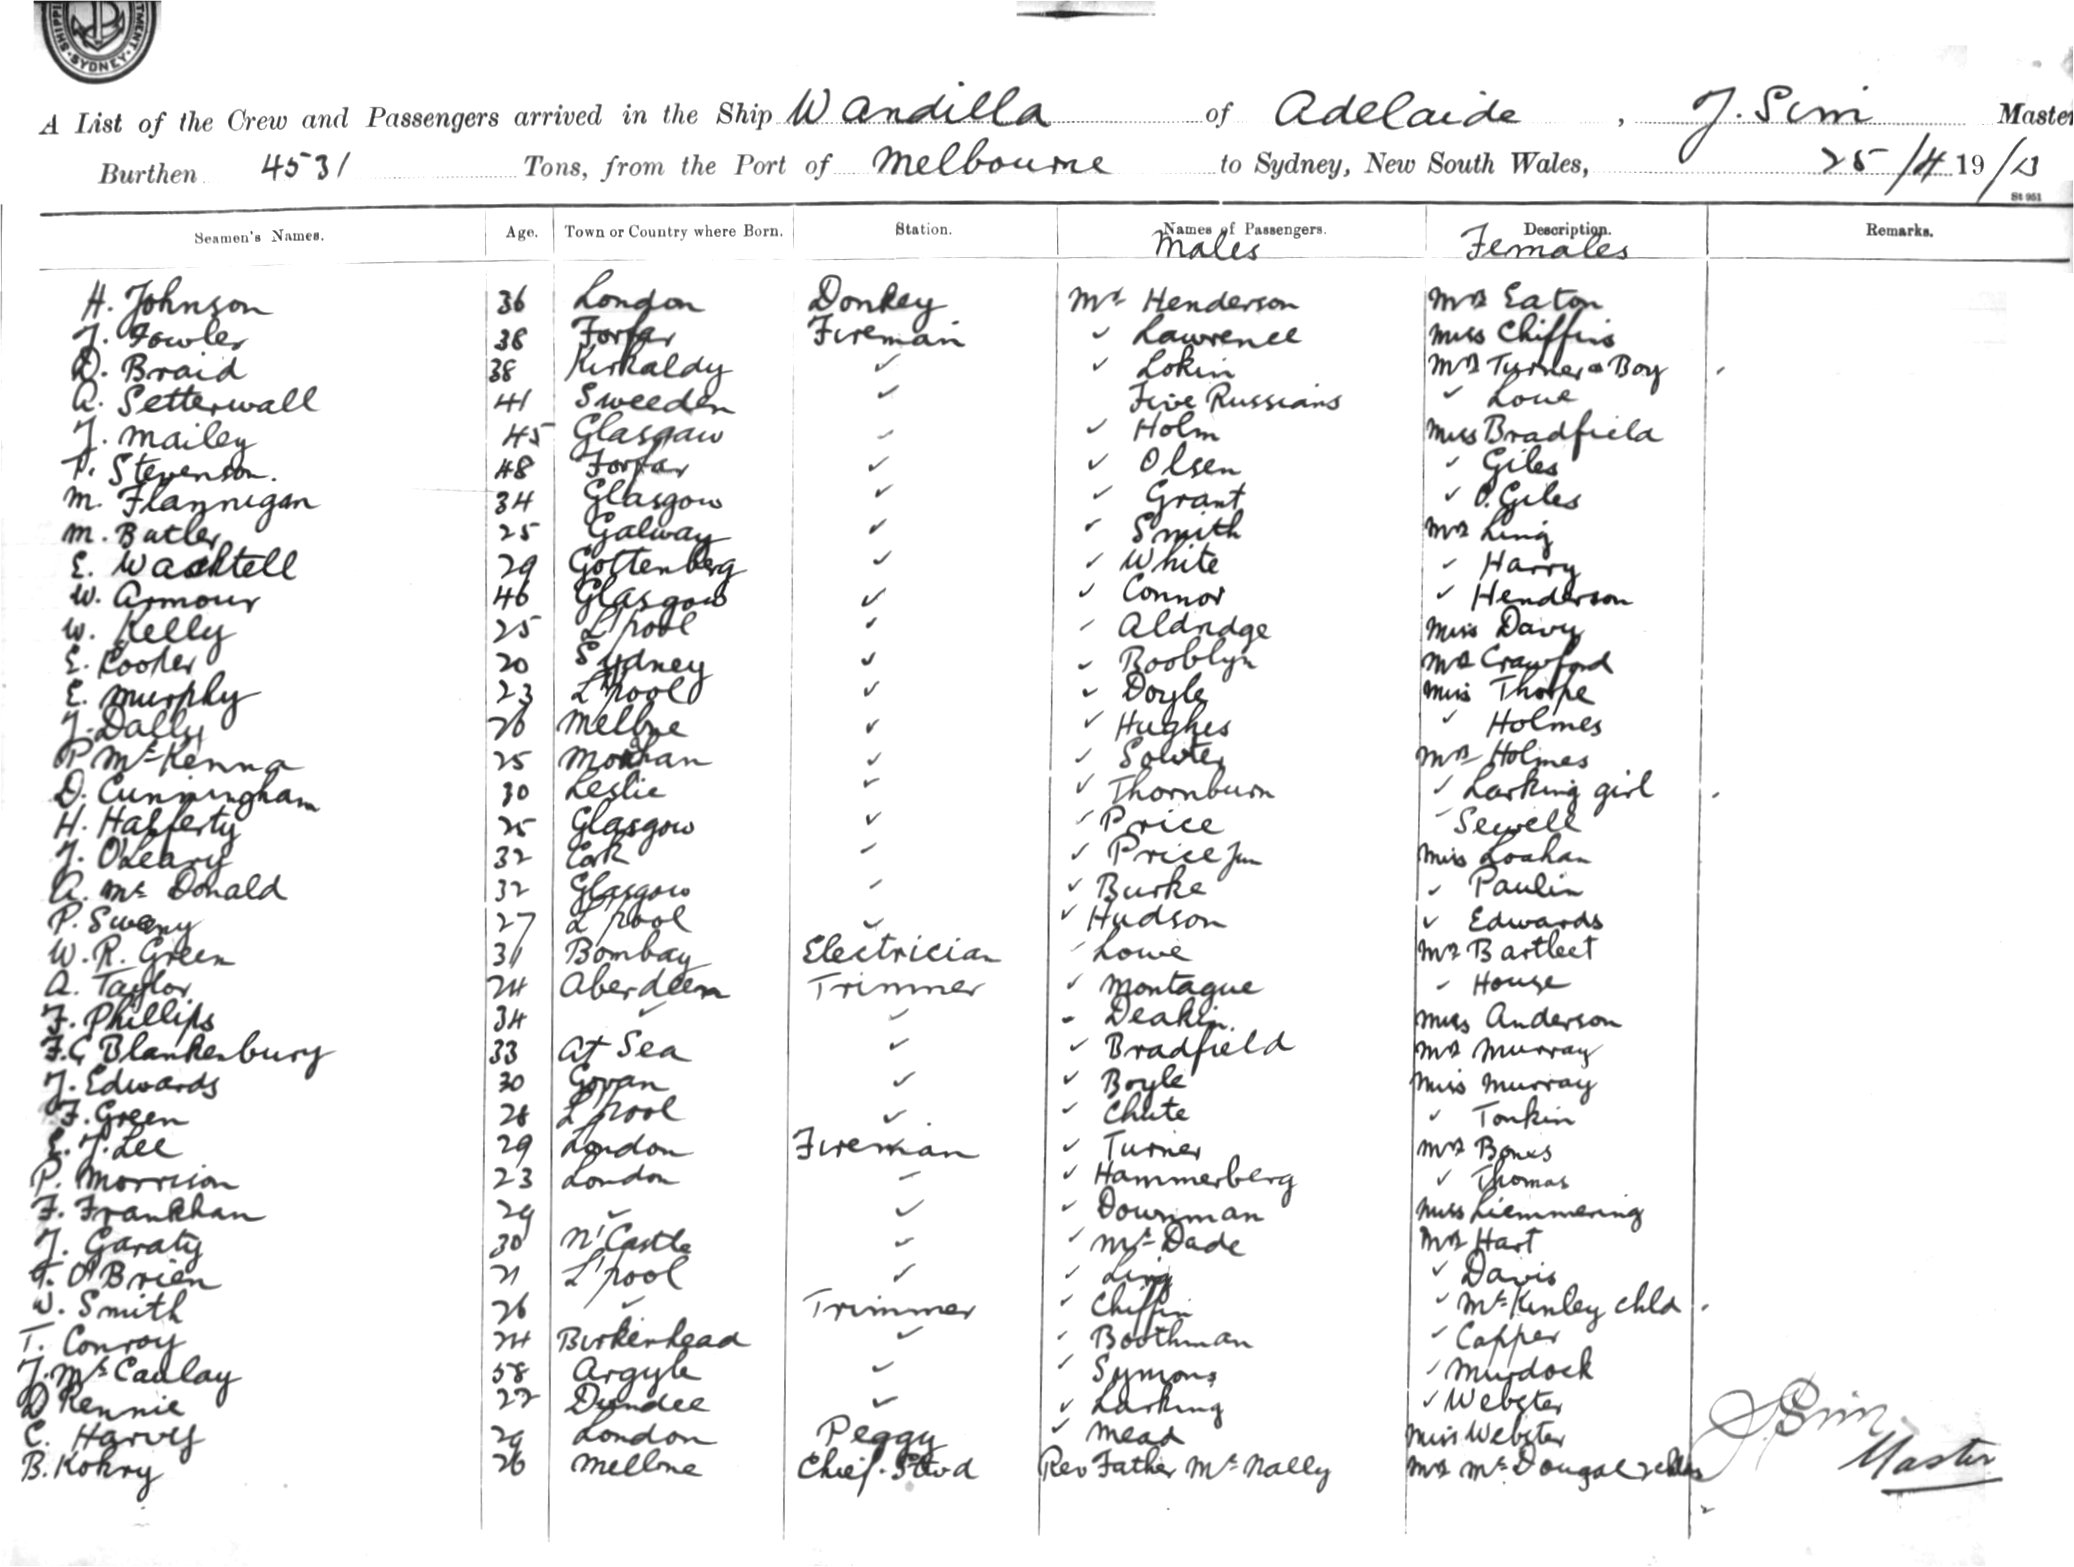 SHIPPI
TMENT.
SYDNEY
A List of the Crew and Passengers arrived in the Ship Wandilla of Adelaide, J. Sim Master
Burthen 4531 Tons, from the Port of Melbourne to Sydney, New South Wales, 25/4 19/13
St 951
Seamen's Names. Age. Town or Country where Born. Station. Names of Passengers. Description. Remarks.
Males Females
H. Johnson 36 London Donkey Mr Henderson Mrs Eaton
J. Fowler 38 Forfar Fireman ✓ Lawrence Miss Chiffins
D. Braid 38 Kirkaldy ✓ ✓ Lokin Mrs Turner & Boy
A. Setterwall 41 Sweeden ✓ Five Russians ✓ Lowe
J. Mailey 45 Glasgaw ✓ ✓ Holm Miss Bradfield
P. Stevenson. 48 Forfar ✓ ✓ Olsen ✓ Giles
M. Flannigan 34 Glasgow ✓ ✓ Grant ✓ O. Giles
M. Butler 25 Galway ✓ ✓ Smith Mrs Ling
E. Wacktell 29 Gottenberg ✓ ✓ White ✓ Harry
W. Armour 46 Glasgow ✓ ✓ Connor ✓ Henderson
W. Kelly 25 L'pool ✓ ✓ Aldridge Miss Davy
E. 20 Sydney ✓ ✓ Booblyn Mrs Crawford
E. Murphy 23 L'pool ✓ ✓ Doyle Miss Thorpe
J. Dally 26 Melbne ✓ ✓ Hughes ✓ Holmes
P McKenna 25 ✓ ✓ Sowter Mrs Holmes
D. Cunningham 30 Leslie ✓ ✓ Thornburn ✓ Larking girl
H. Hafferty 25 Glasgow ✓ ✓ Price ✓ Sewell
J. O'Leary 32 Cork ✓ ✓ Price Jun Miss Loahan
A. Mc Donald 32 Glasgow ✓ ✓ Burke ✓ Paulin
P. Sweeny 27 L'pool ✓ ✓ Hudson ✓ Edwards
W. R. Green 31 Bombay Electrician ✓ Lowe Mrs Bartleet
A. Taylor 24 Aberdeen Trimmer ✓ Montague ✓ House
F. Phillips 34 ✓ ✓ ✓ Deakin. Miss Anderson
F. G Blankenbury 33 At Sea ✓ ✓ Bradfield Mrs Murray
J. Edwards 30 Govan ✓ ✓ Boyle Miss Murray
F. Green 28 L'pool ✓ ✓ Chute ✓ Tonkin
E. J. Lee 29 London Fireman ✓ Turner Mrs Bones
P. Morrison 23 London ✓ ✓ Hammerberg ✓ Thomas
F. Frankhan 29 ✓ ✓ ✓ Downman Miss Liemmering
J. Garaty 30 N'Castle ✓ ✓ McDade Mrs Hart
T. O'Brien 21 L'pool ✓ ✓ Ling ✓ Davis
W. Smith 26 ✓ Trimmer ✓ Chiffin ✓ McKinley chld
T. Conroy 24 Birkenhead ✓ ✓ Boothman ✓ Capper
J. McCaulay 58 Argyle ✓ ✓ Symons ✓ Murdock
D Rennie 22 Dundee ✓ ✓ Larking ✓ Webster
C. Harvey 29 London Peggy ✓ Mead Miss Webster
B. Kokry 26 Melbne Chief. Stwd Rev Father McNally Mrs McDougal 2 chldn
J Sim
Master